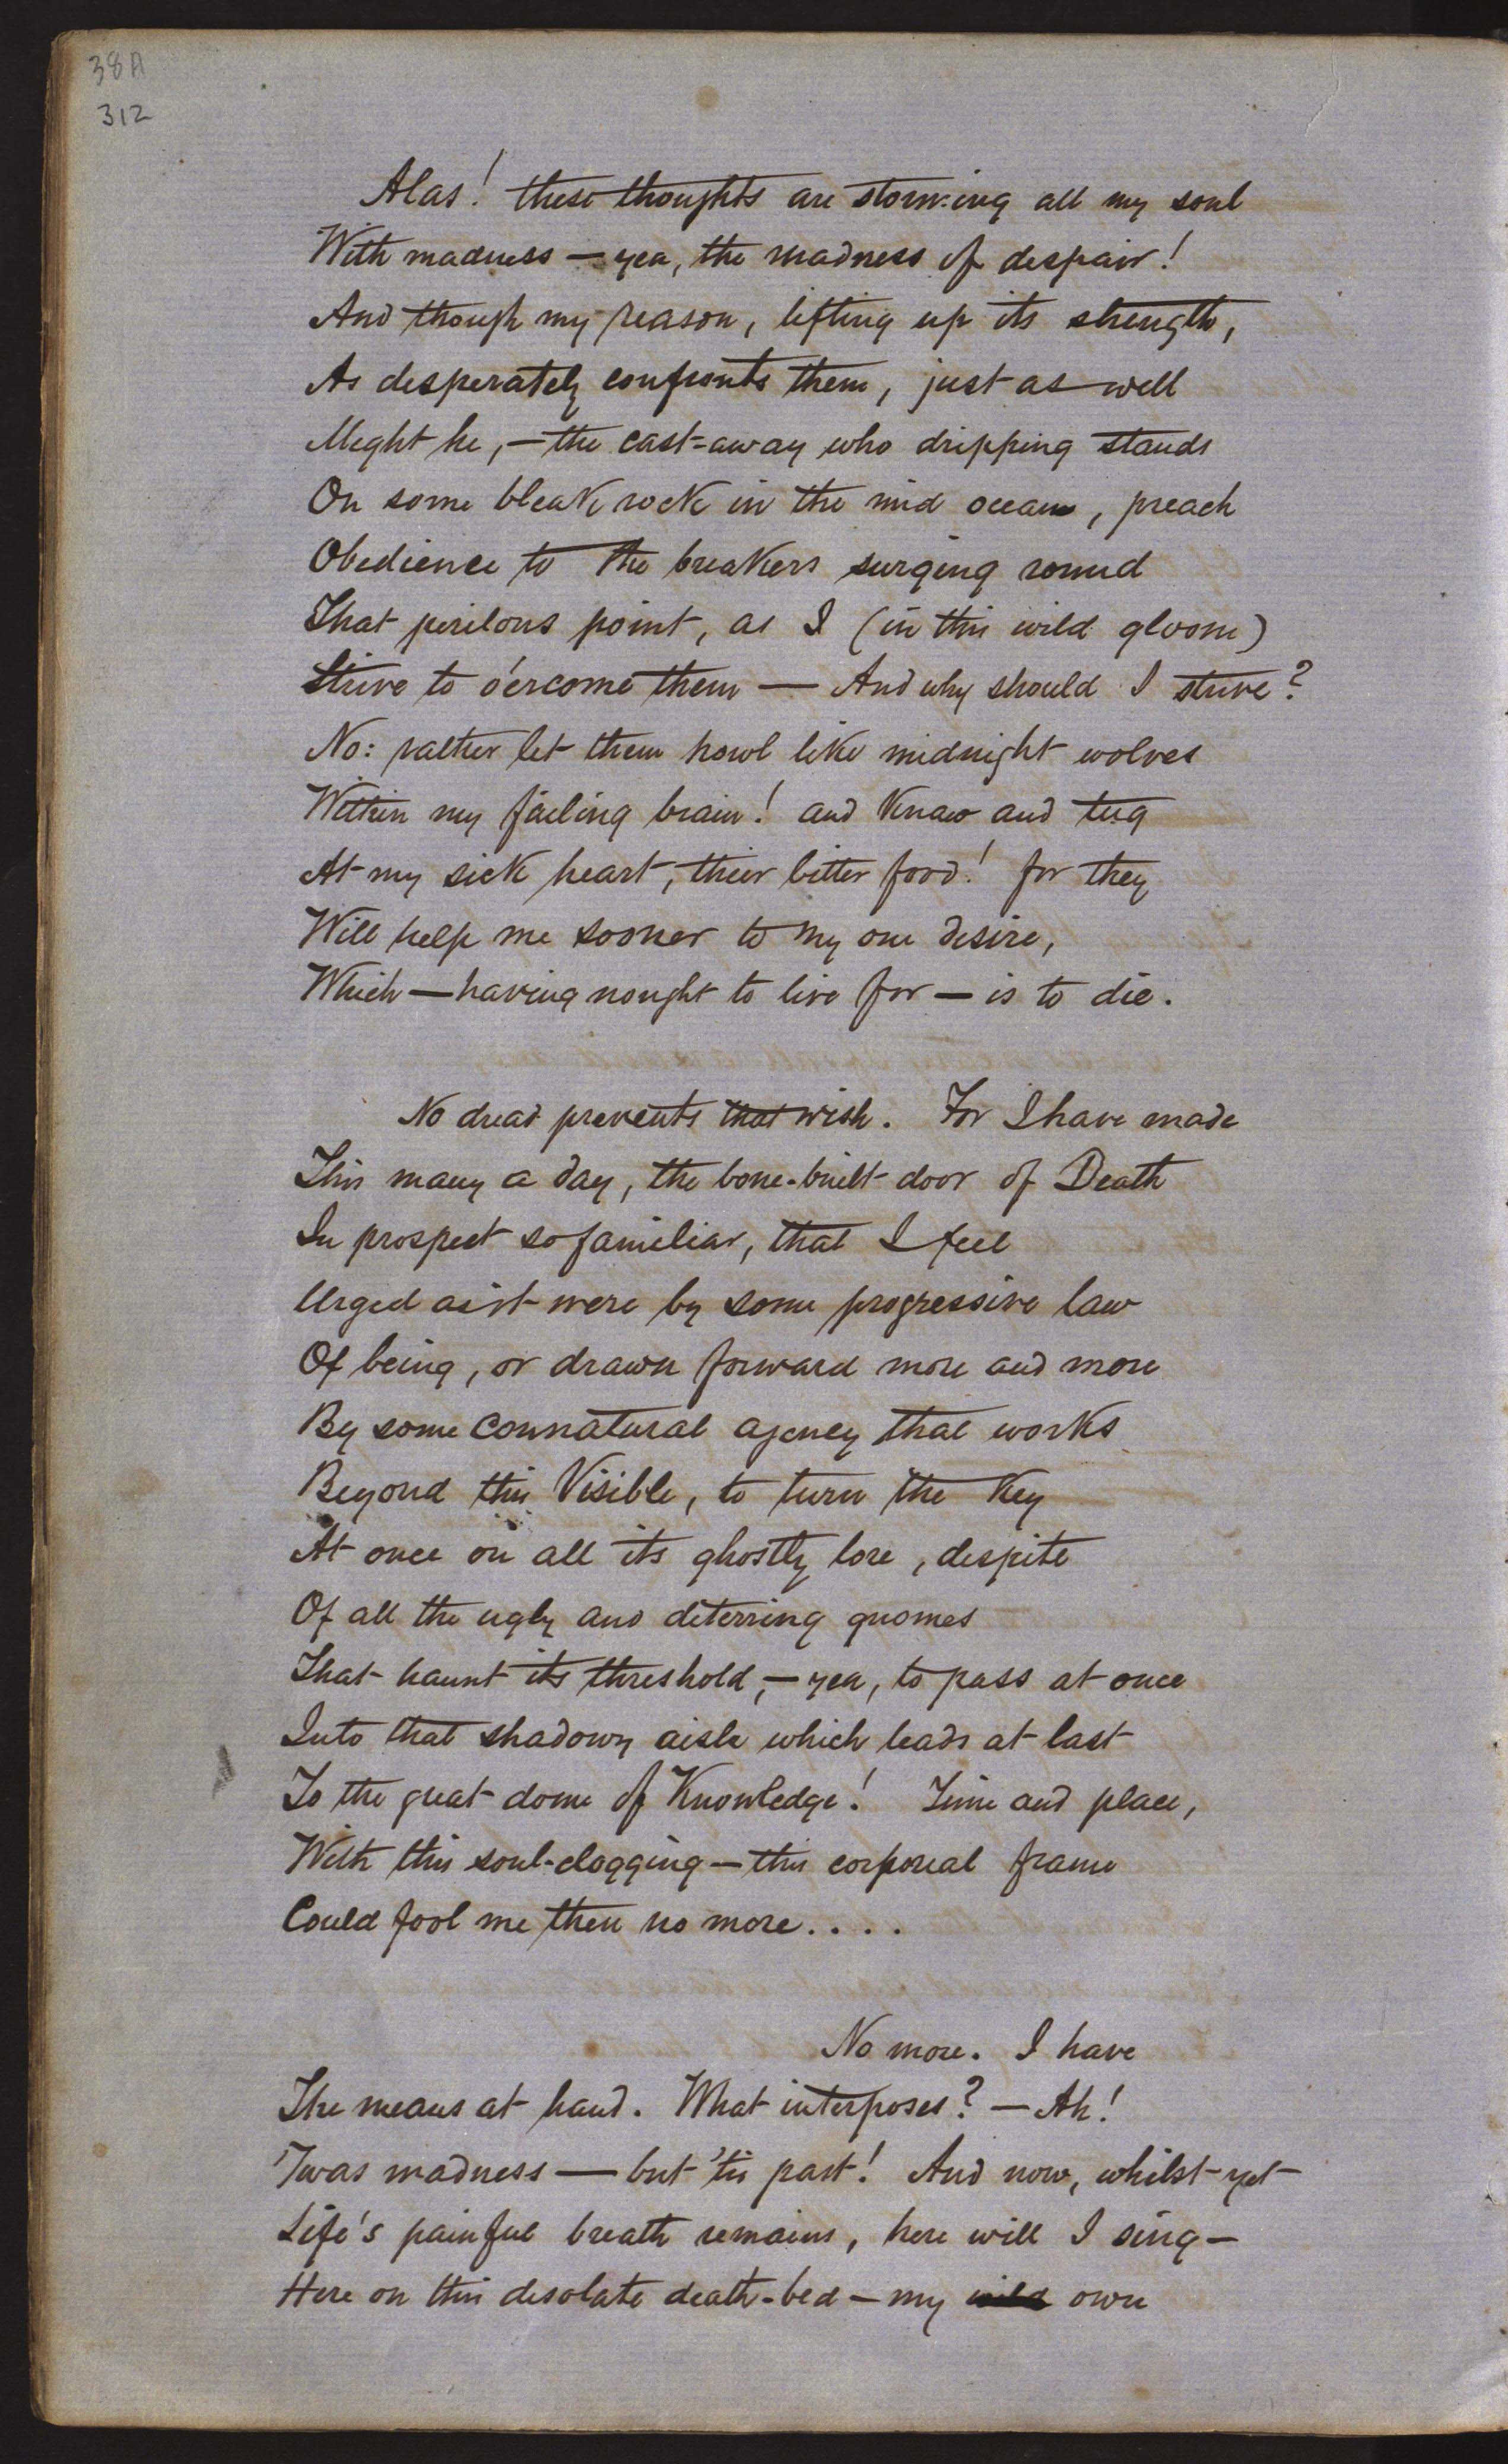 38A
312
Alas! these thoughts are storming all my soul
With madness — yea, the madness of despair!
And though my reason, lifting up its strength,
As desperately confronts them, just as well
Might he, — the cast-away who dripping stands
On some bleak rock in the mid ocean, preach
Obedience to the breakers surging round
That perilous point, as I (in this wild gloom)
Strive to o'ercome them — And why should I strive?
No: rather let them howl like midnight wolves
Within my failing brain! and knaw and tug
At my sick heart, their bitter food! for they
Will help me sooner to my one desire,
Which — having nought to live for — is to die.
No dread prevents that wish. For I have made
This many a day, the bone-built door of Death
In prospect so familiar, that I feel
Urged as it were by some progressive law
Of being, or drawn forward more and more
By some connatural agency that works
Beyond this Visible, to turn the key
At once on all its ghostly lore, despite
Of all the ugly and deterring gnomes
That haunt its threshold, — yea, to pass at once
Into that shadowy aisle which leads at last
To the great dome of Knowledge! Time and place,
With this soul-clogging — this corporeal frame
Could fool me then no more....
No more. I have
The means at hand. What interposes? — Ah!
'Twas madness — but 'tis past! And now, whilst yet
Life's painful breath remains, here will I sing —
Here on this desolate death-bed — my wild own